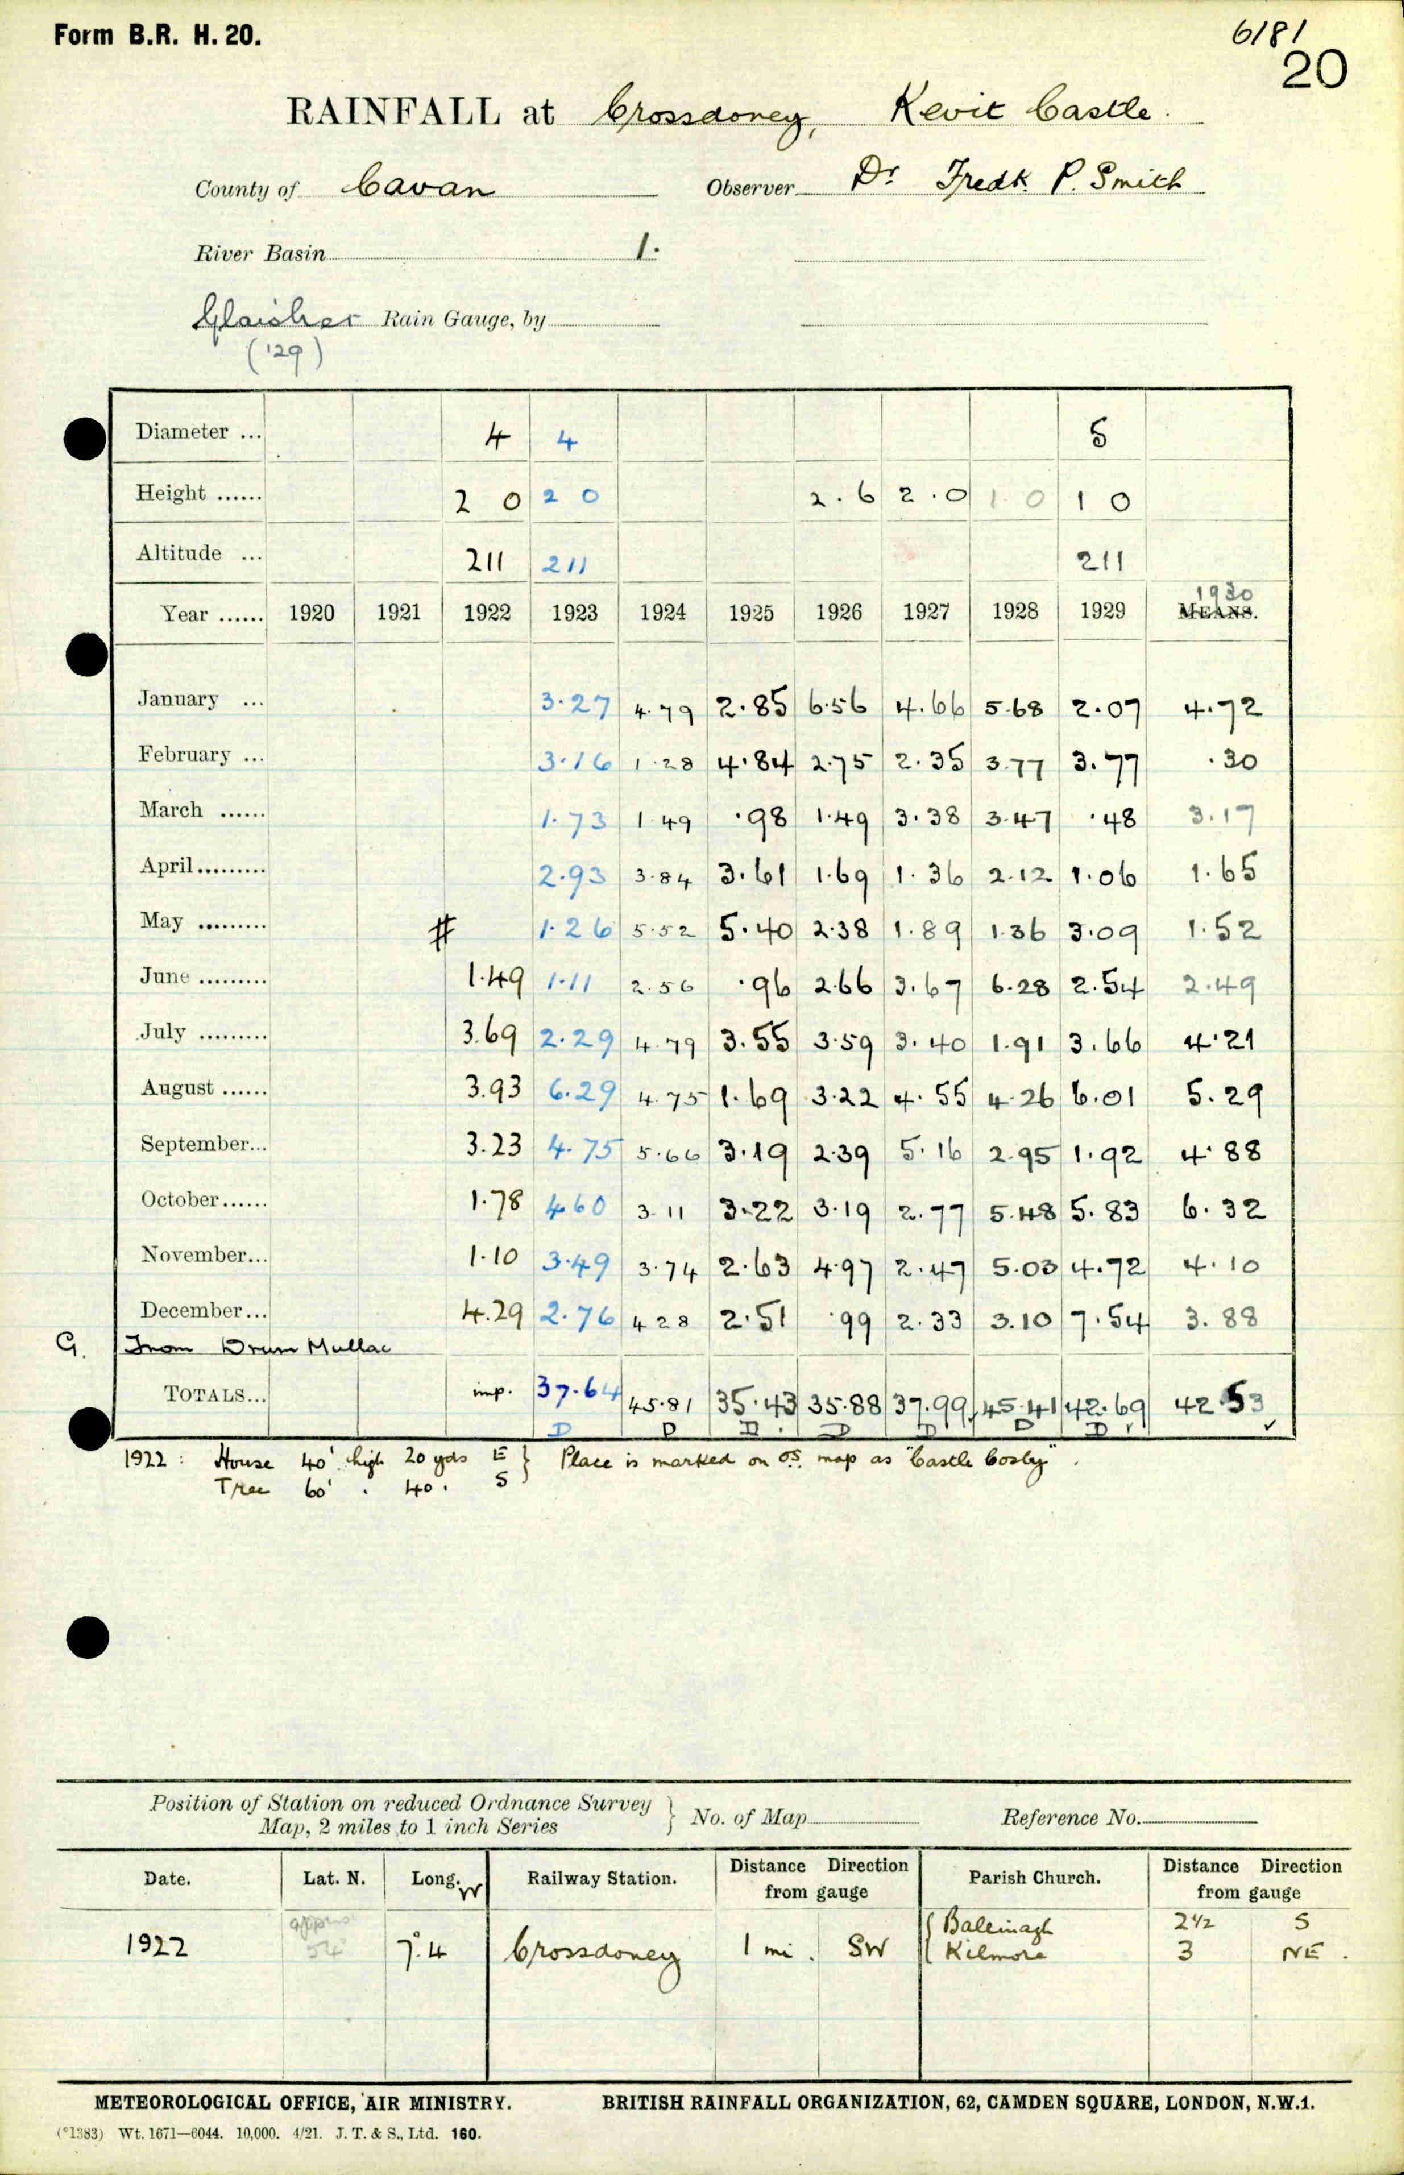 Form B.R. H. 20.
6181
20
RAINFALL at Crossdoney, Kevit Castle.
County of Cavan Observer Dr Fredk P. Smith
River Basin 1.
Glaisher Rain Gauge, by
('29)
Diameter ... 4 4 5
Height ...... 2 0 2 0 2.6 2.0 1 0 1 0
Altitude ... 211 211 211
1930
Year ...... 1920 1921 1922 1923 1924 1925 1926 1927 1928 1929 MEANS.
January ... 3.27 4.79 2.85 6.56 4.66 5.68 2.07 4.72
February ... 3.16 1.28 4.84 2.75 2.35 3.77 3.77 .30
March ...... 1.73 1.49 .98 1.49 3.38 3.47 .48 3.17
April......... 2.93 3.84 3.61 1.69 1.36 2.12 1.06 1.65
May ......... # 1.26 5.52 5.40 2.38 1.89 1.36 3.09 1.52
June ......... 1.49 1.11 2.56 .96 2.66 3.67 6.28 2.54 2.49
July ......... 3.69 2.29 4.79 3.55 3.59 3.40 1.91 3.66 4.21
August ...... 3.93 6.29 4.75 1.69 3.22 4.55 4.26 6.01 5.29
September... 3.23 4.75 5.66 3.19 2.39 5.16 2.95 1.92 4.88
October...... 1.78 4.60 3.11 3.22 3.19 2.77 5.48 5.83 6.32
November... 1.10 3.49 3.74 2.63 4.97 2.47 5.03 4.72 4.10
December... 4.29 2.76 4.28 2.51 .99 2.33 3.10 7.54 3.88
G. From Drum Mullac
TOTALS... imp. 37.64 45.81 35.43 35.88 37.99 45.41 42.69 42.53
D D D D D D D ✓
1922 : House 40' high 20 yds E } Place is marked on O.S. map as "Castle Cosby".
Tree 60' . 40 . S
Position of Station on reduced Ordnance Survey
Map, 2 miles to 1 inch Series } No. of Map Reference No.
Date. Lat. N. Long. W Railway Station. Distance Direction from gauge Parish Church. Distance Direction from gauge
approx
1922 54° 7°.4 Crossdoney 1 mi. SW { Ballinagh 2½ S
Kilmore 3 NE.
METEOROLOGICAL OFFICE, AIR MINISTRY. BRITISH RAINFALL ORGANIZATION, 62, CAMDEN SQUARE, LONDON, N.W.1.
(*1383) Wt. 1671—6044. 10,000. 4/21. J. T. & S., Ltd. 160.